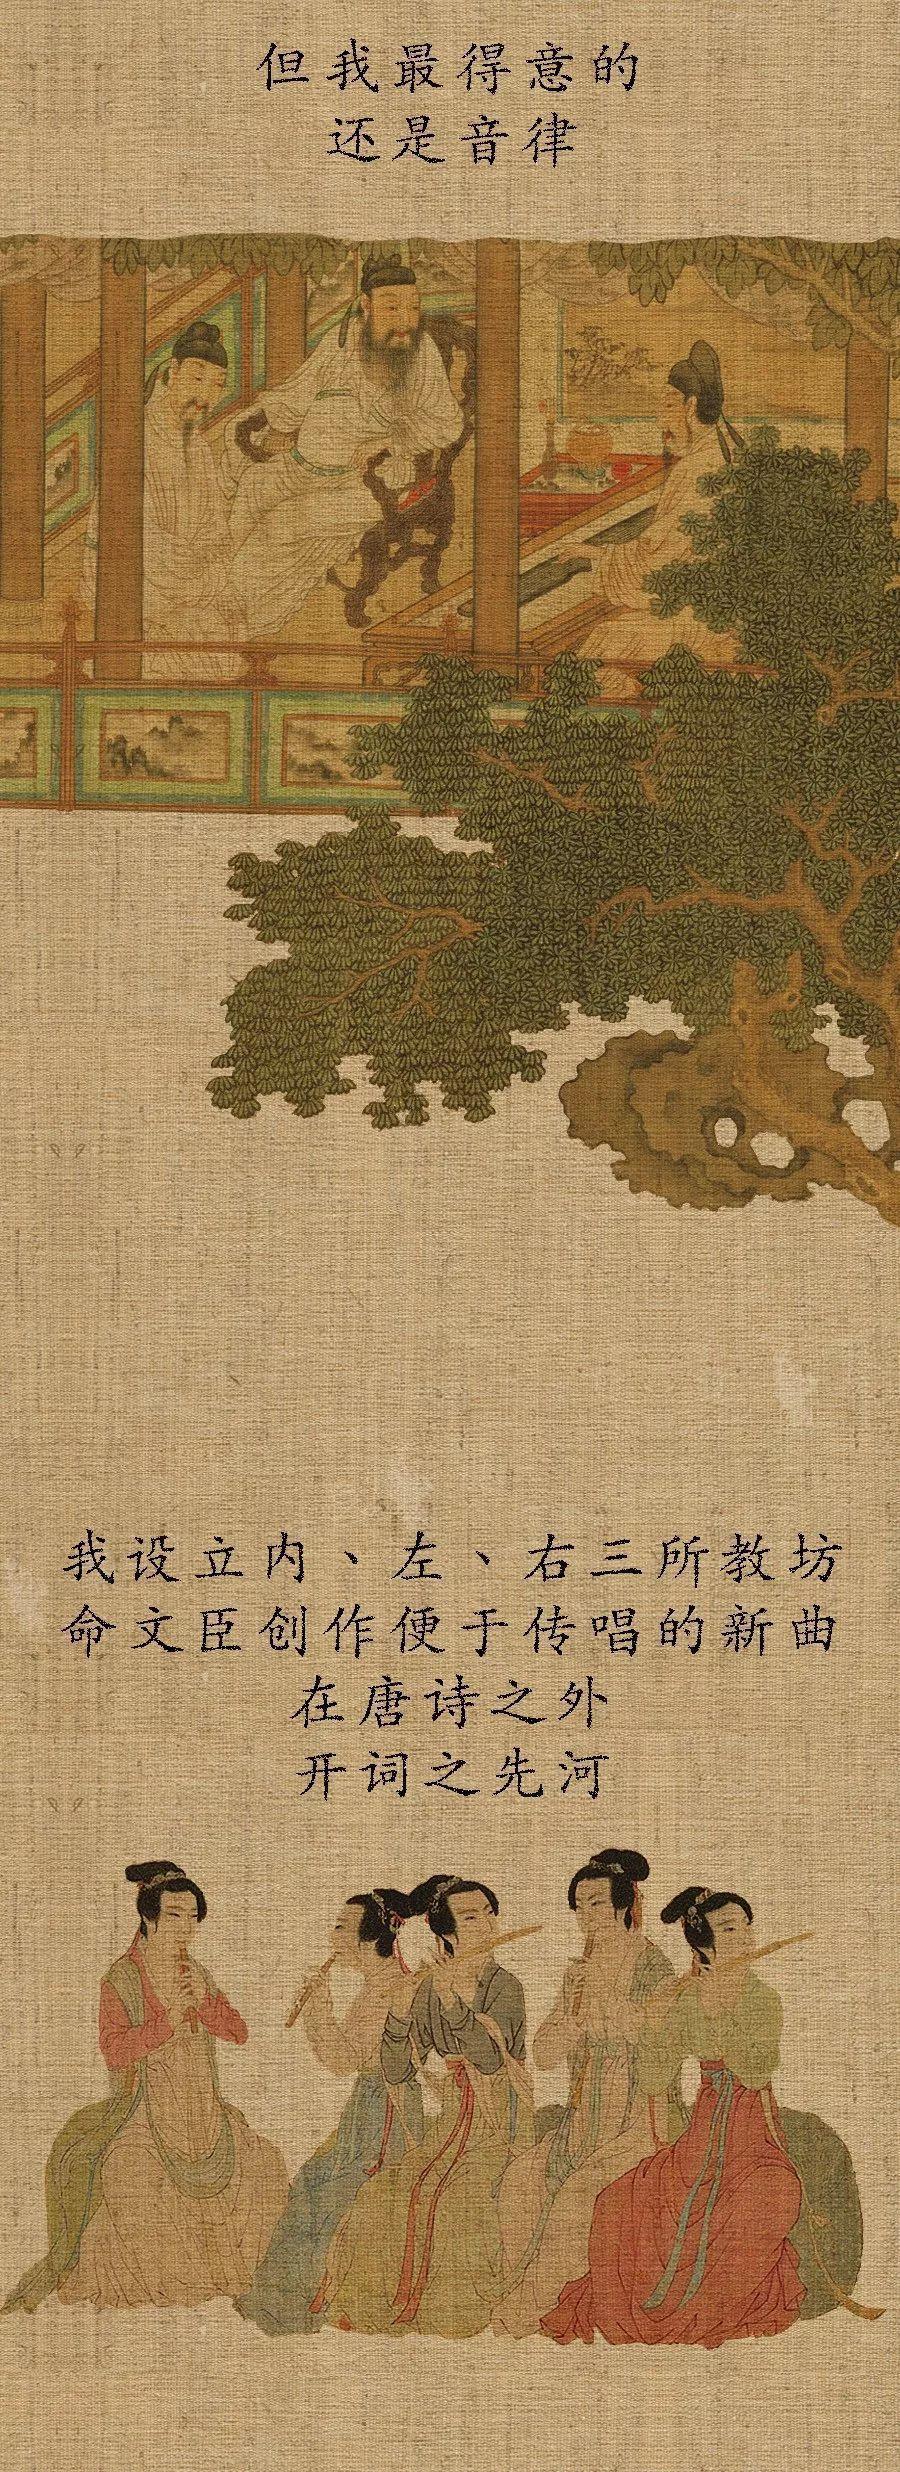 但我最得意的
还是音律
我设立内、左、右三所教坊
命文臣创作便于传唱的新曲
在唐诗之外
开词之先河